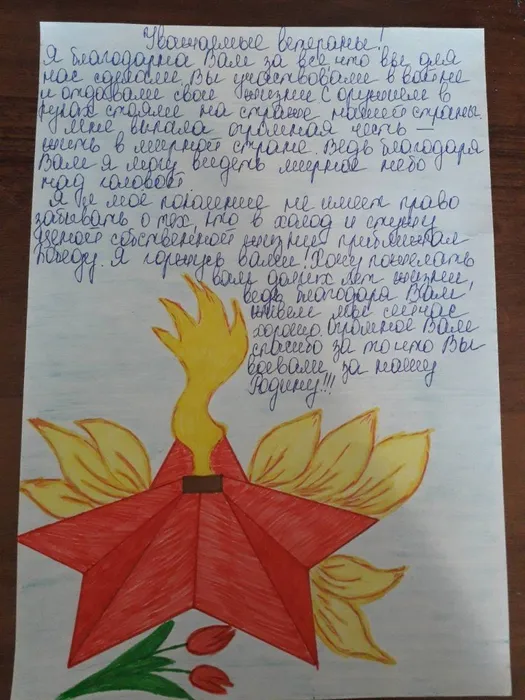 Уважаемые ветераны!
Я благодарна Вам за все что вы для
нас сделали, Вы участвовали в войне
и отдавали свои жизни. С оружием в
руках стояли на страже нашей страны.
Мне выпала огромная честь –
жить в мирной стране. Ведь благодаря
Вам я могу видеть мирное небо
над головой.
Я и мое поколение не имеем право
забывать о тех, кто в холод и стужу
ценой собственной жизни приближал
Победу. Я горжусь вами! Хочу пожелать
вам долгих лет жизни,
ведь благодаря Вам,
живем мы сейчас
хорошо. Огромное Вам
спасибо за то что Вы
воевали за нашу
Родину!!!